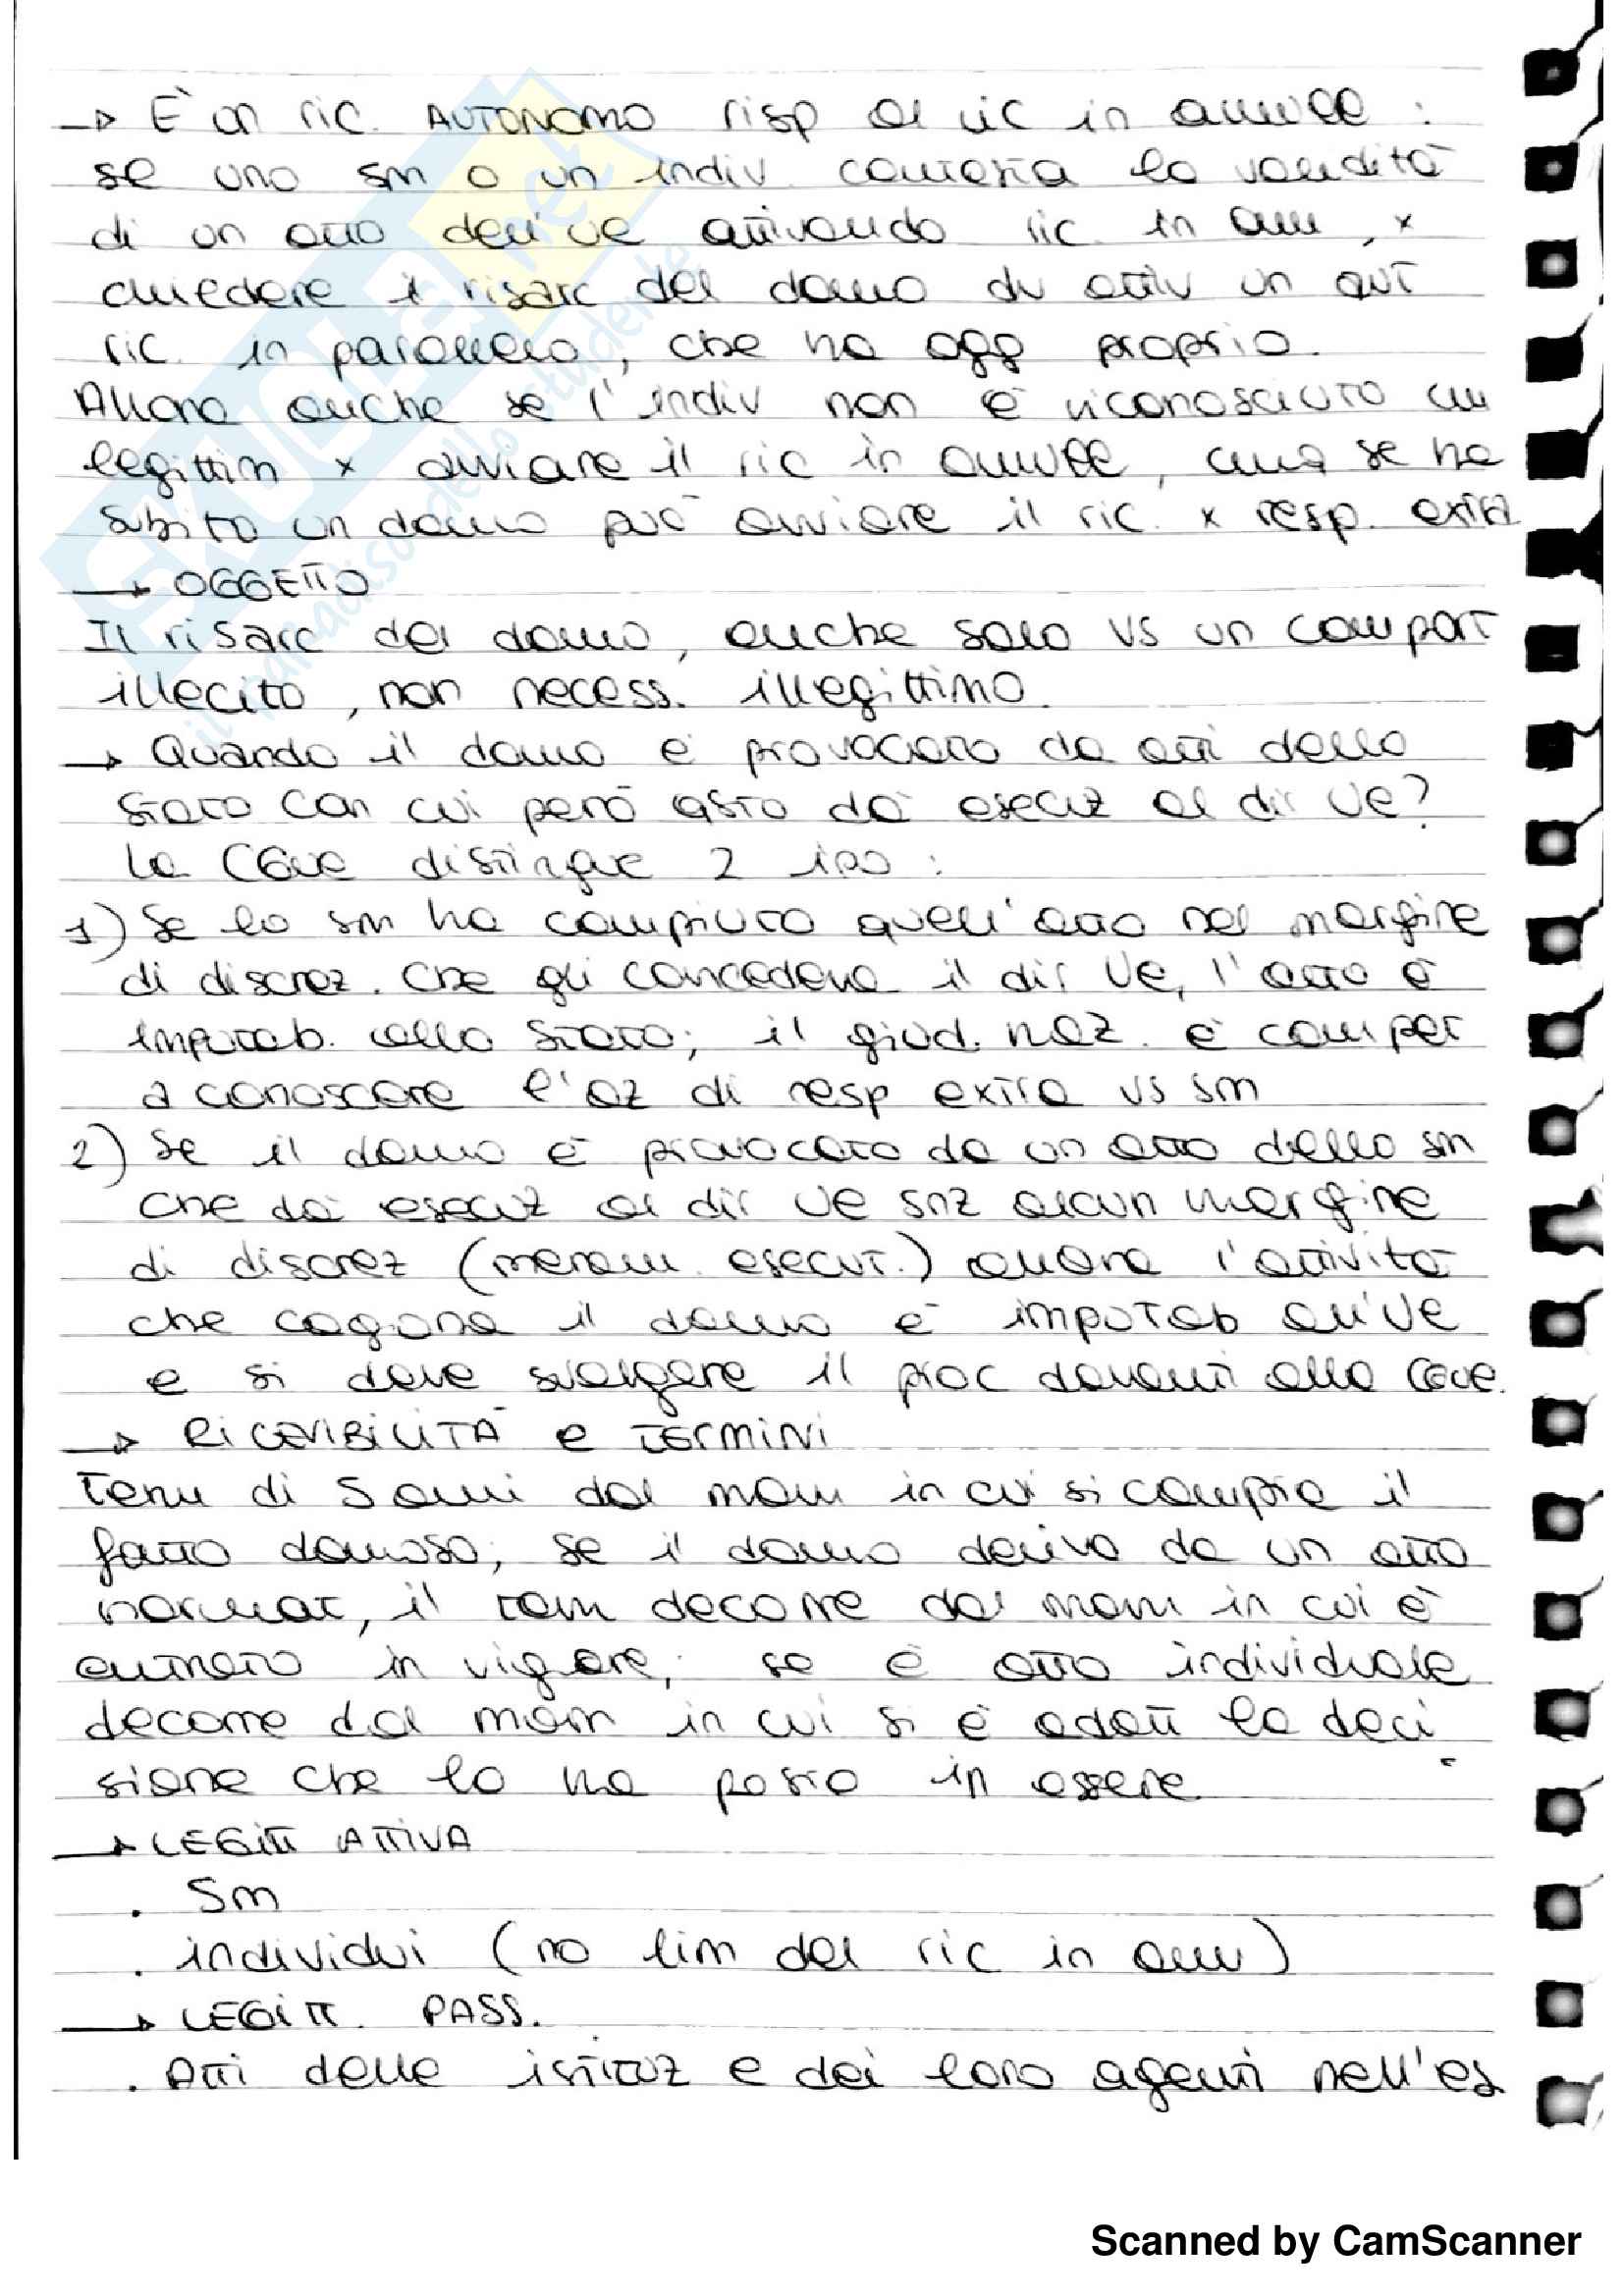 → È un ric. AUTONOMO risp al ric in annull :
se uno sm o un indiv. contesta la validità
di un atto dell'ue attivando ric. in ann, x
chiedere il risarc del danno dv attiv un aut
ric. in parallelo, che ha ogg proprio.
Allora anche se l'indiv non è riconosciuto
legittim x avviare il ric in annull, ma se ha
subito un danno può avviare il ric. x resp. extra
→ OGGETTO
Il risarc del danno, anche solo vs un comport
illecito, non necess. illegittimo.
→ Quando il danno è provocato da atti dello
stato con cui però qsto dà esecuz al dir ue?
La CGue distingue 2 ipo :
1) Se lo sm ha compiuto quell'atto nel margine
di discrez. che gli concedeva il dir Ue, l'atto è
imputab. allo Stato; il giud. naz. è compet
a conoscere l'az di resp extra vs sm
2) Se il danno è provocato da un atto dello sm
che dà esecuz al dir Ue snz alcun margine
di discrez (meram. esecut.) allora l'attività
che cagiona il danno è imputab all'Ue
e si deve svolgere il proc davanti alla CGue.
→ RICEVIBILITÀ e TERMINI
Term di 5 anni dal mom in cui si compie il
fatto dannoso; se il danno deriva da un atto
normat, il term decorre dal mom in cui è
entrato in vigore; se è atto individuale
decorre dal mom in cui si è adott la deci
sione che lo ha posto in essere.
→ LEGITT ATTIVA
. Sm
. individui (no lim del ric in ann)
→ LEGITT. PASS.
. Atti delle istituz e dei loro agenti nell'es
SKUOLA.net
il paradiso dello studente
Scanned by CamScanner